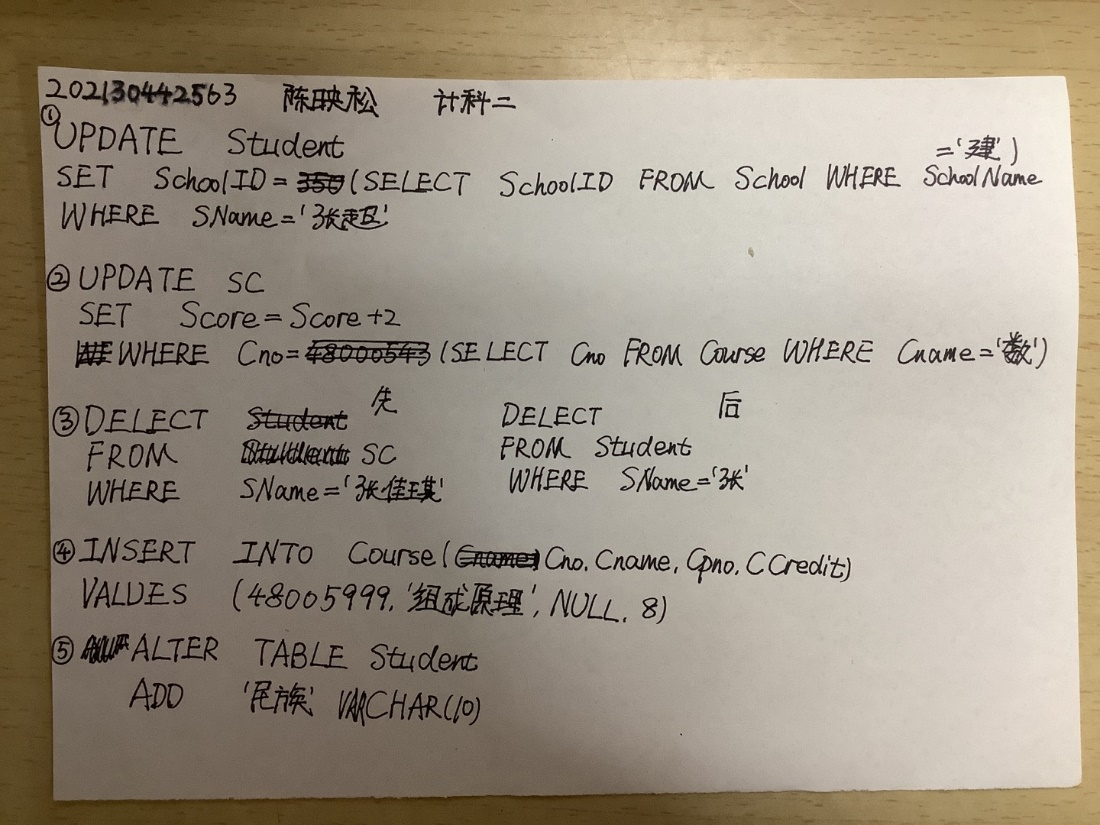 202130442563 陈映松 计科二
①UPDATE Student
SET SchoolID=(SELECT SchoolID FROM School WHERE SchoolName ='建')
WHERE SName='张超'
②UPDATE SC
SET Score=Score+2
WHERE Cno=(SELECT Cno FROM Course WHERE Cname='数')
③DELECT 先
FROM SC
WHERE SName='张佳琪'
DELECT 后
FROM Student
WHERE SName='张'
④INSERT INTO Course(Cno,Cname,Cpno,CCredit)
VALUES (48005999,'组成原理',NULL,8)
⑤ALTER TABLE Student
ADD '民族' VARCHAR(10)